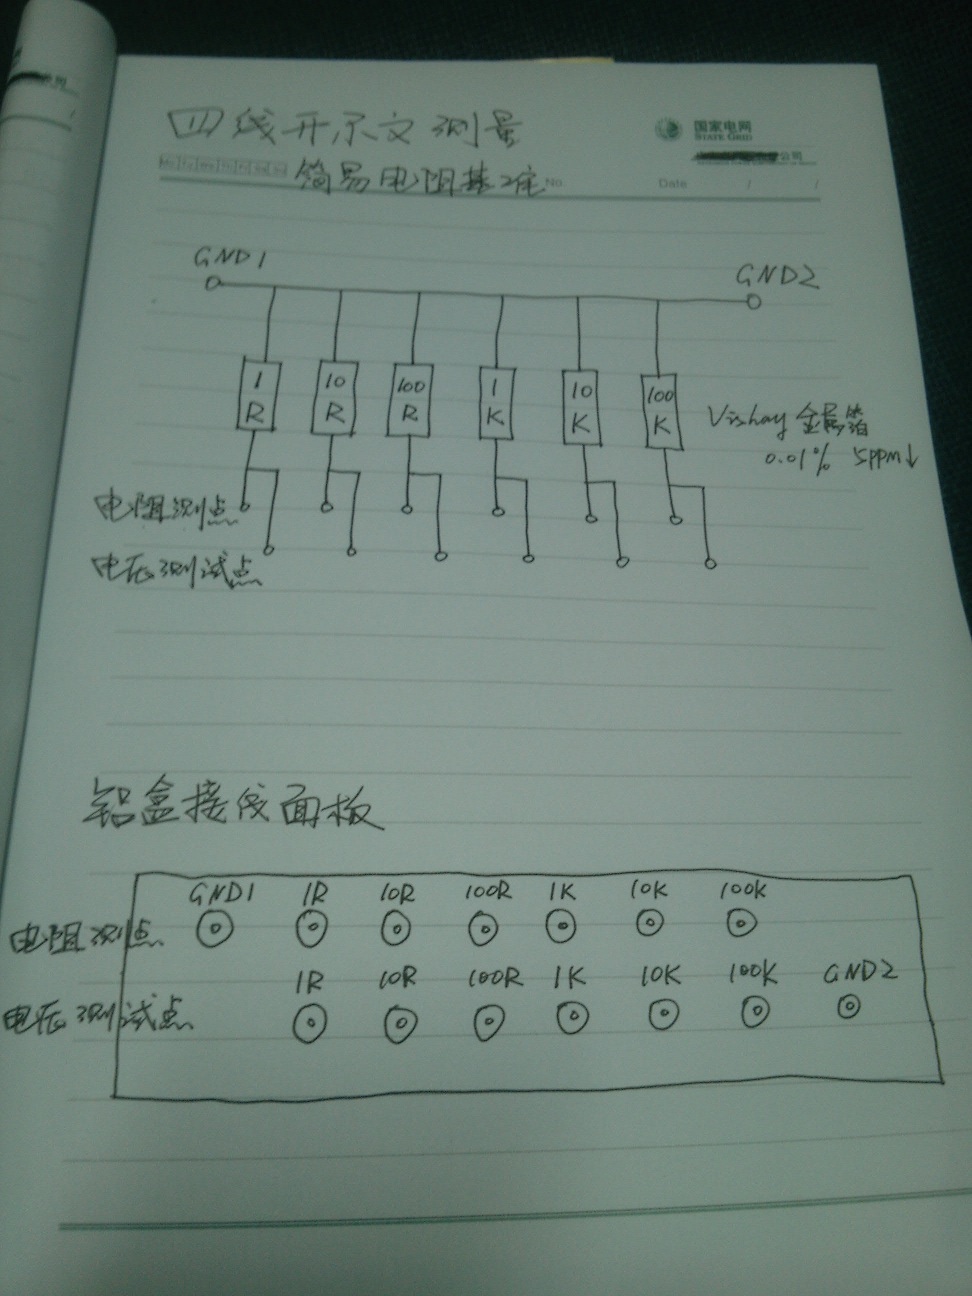 四线开尔文测量
国家电网
STATE GRID
公司
简易电阻基准
No.
Date / /
GND1
GND2
1R
10R
100R
1K
10K
100K
Vishay 金属箔
0.01% 5ppm↓
电阻测点
电压测试点
铝盒接线面板
GND1 1R 10R 100R 1K 10K 100K
电阻测点
1R 10R 100R 1K 10K 100K GND2
电压测试点